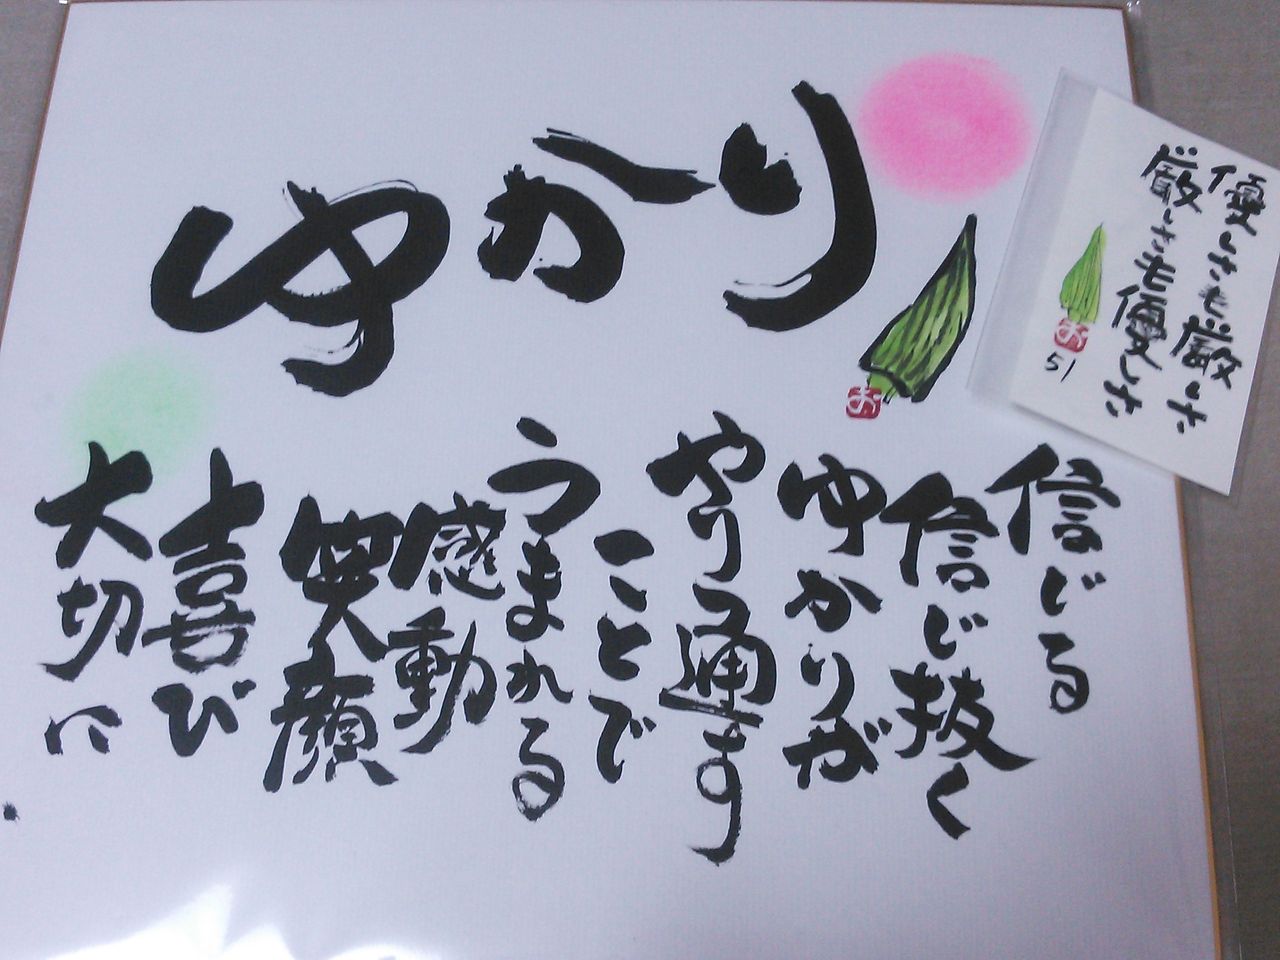 ゆかり
信じる
信じ抜く
ゆかりが
やり通す
ことで
うまれる
感動
笑顔
喜び
大切に
お
優しさも厳しさ
厳しさも優しさ
お
51